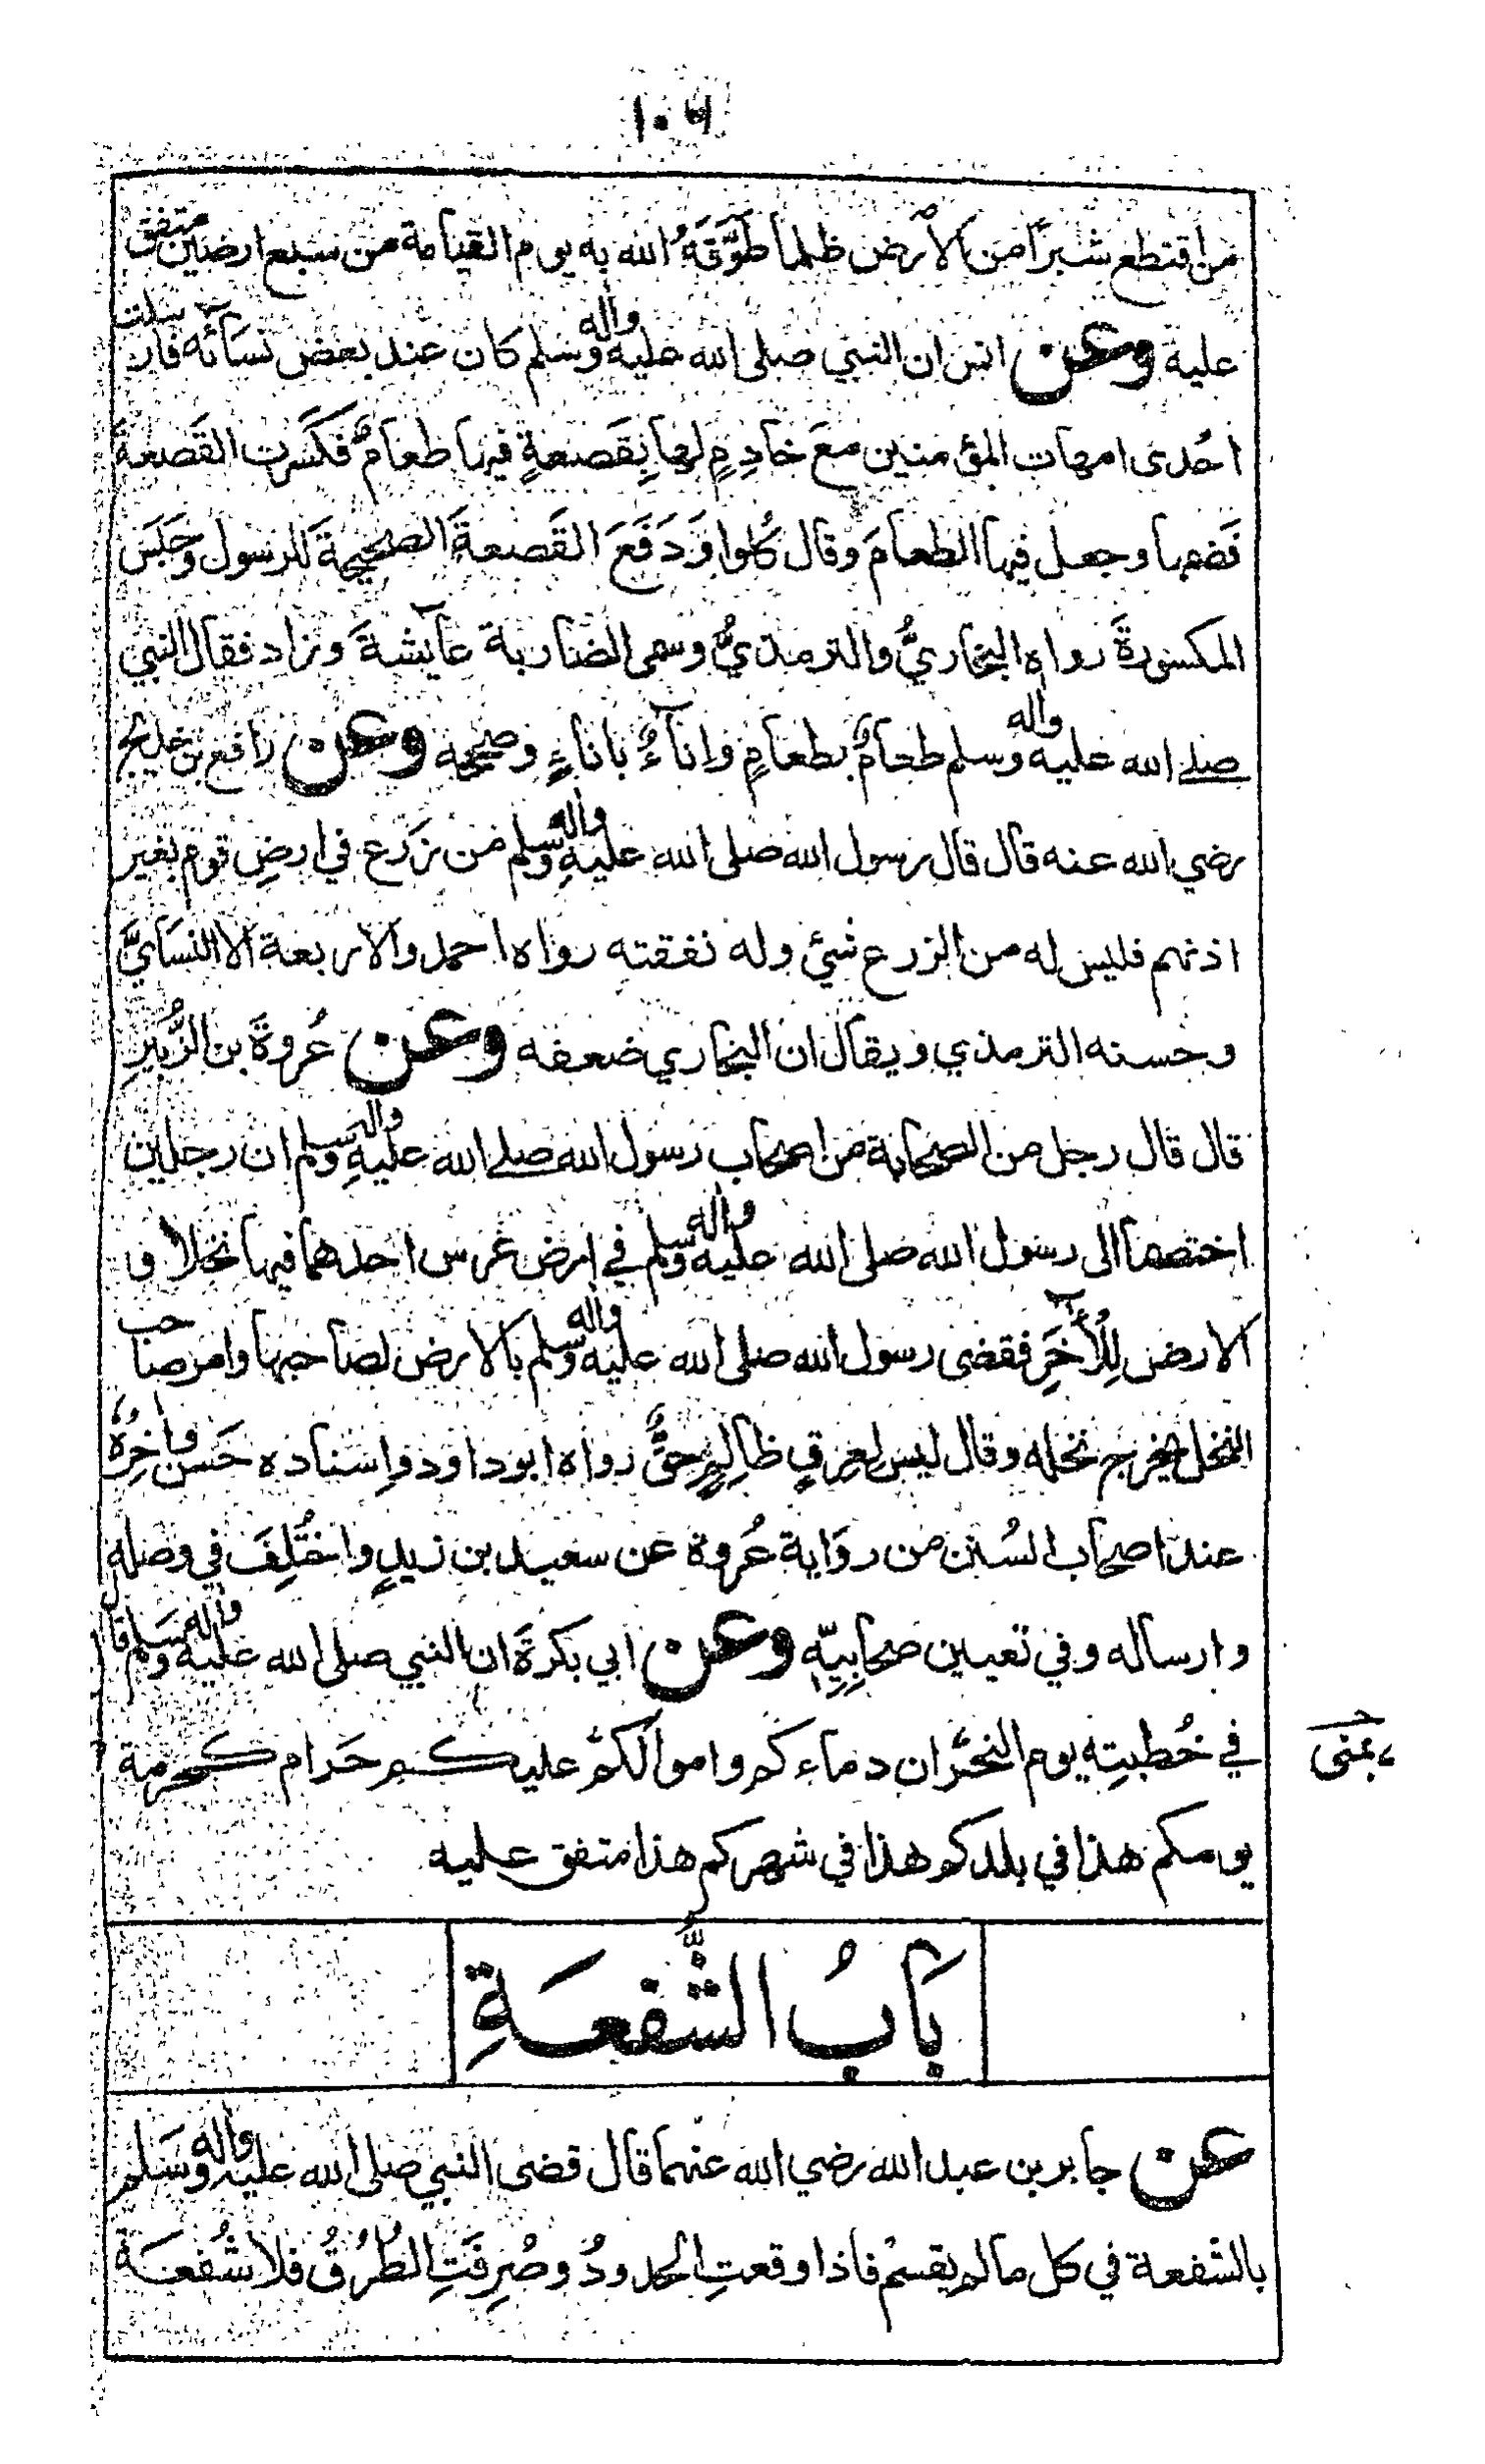 ١٠٦
من اقتطع شبرًا من الأرض ظلما طَوَّقَهُ الله به يوم القيامة من سبع ارضين متفق
عليه وعن انس ان النبي صلى الله عليه وآله وسلم كان عند بعض نسآئه فارسلت
احْدى امهات المؤمنين معَ خادِمٍ لها بِقَصعةٍ فيها طعامٌ فكَسَرت القَصعةَ
فَضمها وجعل فيها الطعامَ وقال كُلوا وَدَفَعَ القَصعةَ الصحيحةَ للرسول وحَبَسَ
المكسورةَ رواه البخاريُّ والترمذيُّ وسمى الضاربة عآيشةَ وزاد فقال النبي
صلى الله عليه وآله وسلم طعامٌ بطعامٍ وانآءٌ باناءٍ وصححه وعن رافع بن خديج
رضي الله عنه قال قال رسول الله صلى الله عليهِ وآله وسلم من زَرَعَ في ارضِ قوم بغير
اذنهم فليس له من الزرع شئ وله نفقته رواه احمد والاربعة الا النسايَّ
وحسنه الترمذي ويقال ان البخاري ضعفه وعن عُروةَ بن الزُّبيرِ
قال قال رجل من الصحابة من اصحاب رسول الله صلى الله عليهِ وآله وسلم ان رجلين
اختصما الى رسول الله صلى الله عليه وآله وسلم في ارض غرس احدهما فيها نخلا و
الارض لِلْآخَرِ فقضى رسول الله صلى الله عليه وآله وسلم بالارض لصاحبها وامر صاحب
النخل يخرج نخله وقال ليس لعِرقٍ ظالِمٍ حقٌّ رواه ابو داود واِسناده حَسن وآخِرُهُ
عند اصحاب السُنن من روَاية عُروة عن سعيد بن زيدٍ واختُلِفَ في وصله
وارساله وفي تعيين صحابِيِّهِ وعن ابي بكرةَ ان النبي صلى الله عليه وآله وسَلم قال
في خُطبتِه يوم النحْر ان دماءكم واموالكمْ عليكم حَرام كحرمة
بمنى
يومكم هذا في بلدكم هذا في شهركم هذا متفق عليه
بَابُ الشُّفعَةِ
عن جابر بن عبد الله رضي الله عنهما قال قضى النبي صلى الله عليه وآله وسَلم
بالشفعة في كل ما لم يقسمْ فاذا وقعتِ الحدودُ وصُرِفَتِ الطُرُقُ فلا شُفعَةَ